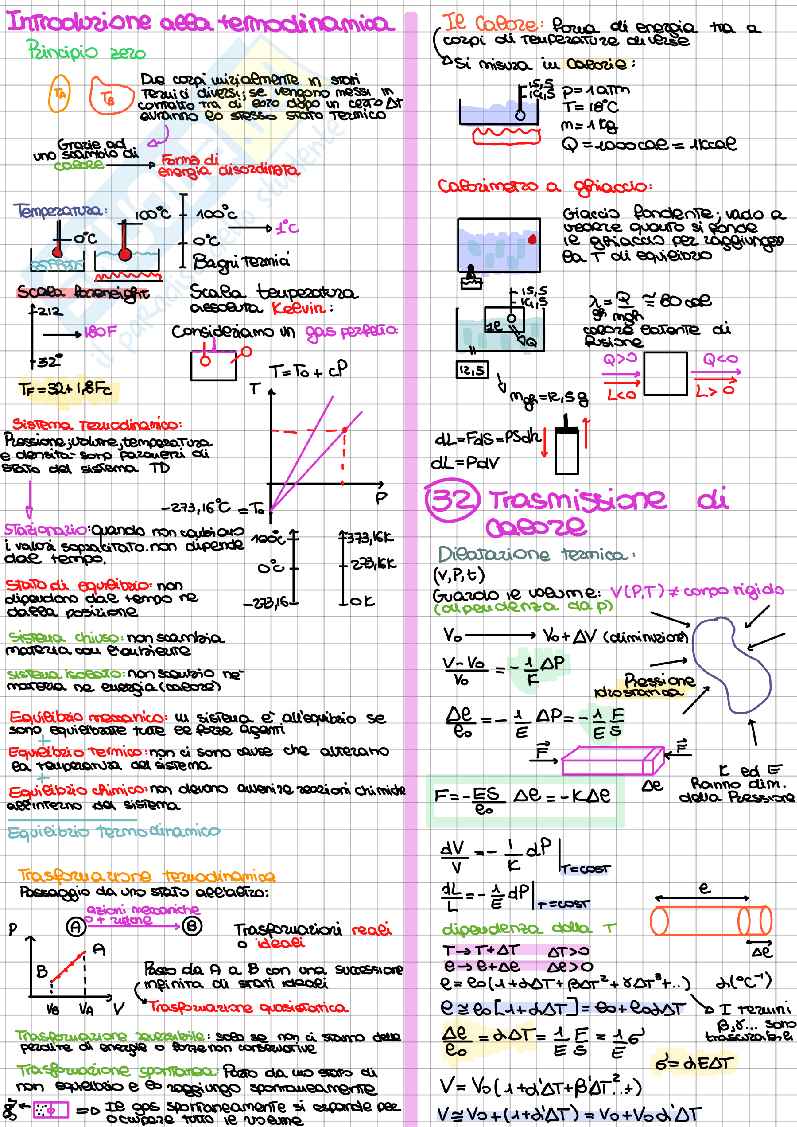 Introduzione alla termodinamica
Principio zero
TA
TB
Due corpi inizialmente in stati
termici diversi; se vengono messi in
contatto tra di loro dopo un certo Δt
avranno lo stesso stato termico
Grazie ad
uno scambio di
calore
Forma di
energia disordinata
Temperatura:
0°C
100°C
100°C
0°C
1°C
Bagni termici
Scala Fareneight
212
180F
32°
TF = 32 + 1,8Fc
Scala temperatura
assoluta Kelvin:
Consideriamo un gas perfetto:
T = To + cP
T
P
-273,16°C = To
Sistema Termodinamico:
Pressione, volume, temperatura
e densità sono parametri di
stato del sistema TD
Stazionario: quando non cambiano
i valori sopracitato. non dipende
dal tempo.
100°C
0°C
-273,16
373,16K
273,16K
0K
Stato di equilibrio: non
dipendono dal tempo ne
dalla posizione
Sistema chiuso: non scambia
materia con l'ambiente
Sistema isolato: non scambio ne
materia ne energia (calore)
Equilibrio meccanico: un sistema e' all'equilibrio se
sono equilibrate tutte le forze agenti
+
Equilibrio Termico: non ci sono cause che alterano
la temperatura del sistema
+
Equilibrio chimico: non devono avvenire reazioni chimiche
all'interno del sistema
Equilibrio termodinamico
Trasformazione termodinamica
Passaggio da uno stato all'altro:
A
azioni meccaniche
o + termiche
B
P
B
A
VB
VA
V
Trasformazioni reali
o ideali
Passo da A a B con una successione
infinita di stati ideali
Trasformazione quasistatica
Trasformazione reversibile: solo se non ci stanno delle
perdite di energie o forze non conservative
Trasformazione spontanea: Parto da uno stato di
non equilibrio e lo raggiungo spontaneamente
Il gas spontaneamente si espande per
occupare tutto il volume
Il Calore: Forma di energia tra 2
corpi di temperature diverse
Si misura in Calorie:
15,5
14,5
P = 1 atm
T = 18°C
m = 1 Kg
Q = 1000 cal = 1 Kcal
Calorimetro a ghiaccio:
Giaccio fondente, vado a
vedere quanto si fonde
il ghiaccio per raggiungere
la T di equilibrio
15,5
14,5
Q
12,5
λ = Q/mgh ≅ 80 cal
gr
calore latente di
fusione
mgh = 12,5 g
Q>0
L<0
Q<0
L>0
dL = FdS = PSdh
dL = PdV
32 Trasmissione di
calore
Dilatazione termica:
(V, P, t)
Guardo il volume: V(P,T) ≠ corpo rigido
(dipendenza da p)
Vo → Vo + ΔV (diminuzione)
V-Vo/Vo = -1/K ΔP
Pressione
idrostatica
Δl/lo = -1/E ΔP = -1/E F/S
F
F
Δl
K ed E
hanno dim.
della Pressione
F = -ES/lo Δl = -KΔl
dV/V = -1/K dP |T=cost
dL/L = -1/E dP |T=cost
dipendenza dalla T
T → T+ΔT ΔT>0
l → l+Δl Δl>0
l
Δl
l = lo (1+αΔT+βΔT²+γΔT³+..) α(°C⁻¹)
l ≅ lo [1+αΔT] = lo + loαΔT
I termini
β, γ... sono
trascurabili
Δl/lo = αΔT = 1/E F/S = 1/E σ
σ = αEΔT
V = Vo (1+α'ΔT+β'ΔT²..+)
V ≅ Vo + (1+α'ΔT) = Vo + Voα'ΔT